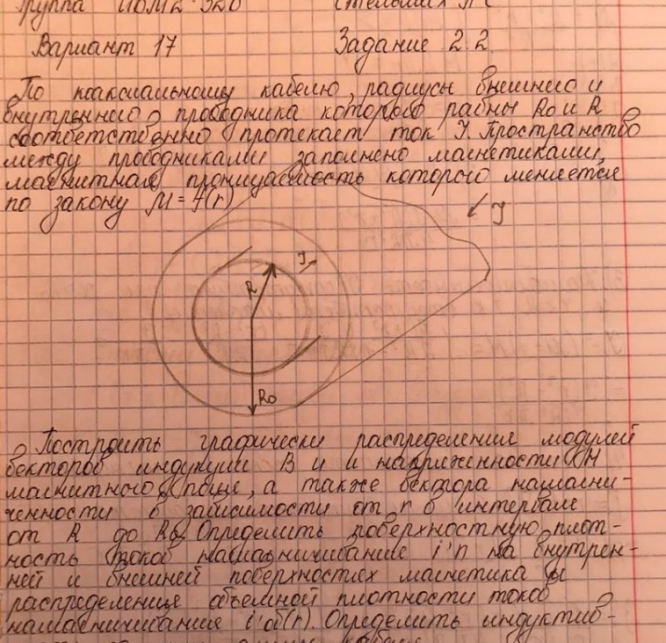 Группа
Вариант 17 Задание 2.2.
По коаксиальному кабелю, радиусы внешнего и
внутреннего проводника которого равны R₀ и R
соответственно протекает ток I. Пространство
между проводниками заполнено магнетиками,
магнитная проницаемость которого меняется
по закону μ = f(r)
I
I
R
R₀
Построить графически распределения модулей
векторов индукции B и и напряженности H
магнитного поля, а также вектора намагни-
ченности в зависимости от r в интервале
от R до R₀. Определить поверхностную плот-
ность токов намагничивание i'п на внутрен-
ней и внешней поверхностях магнетика и
распределение объемной плотности токов
намагничивания i'об(r). Определить индуктив-